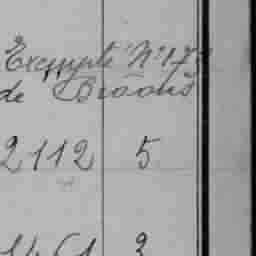 Exempté N° 173
de Broons
2112 5
3